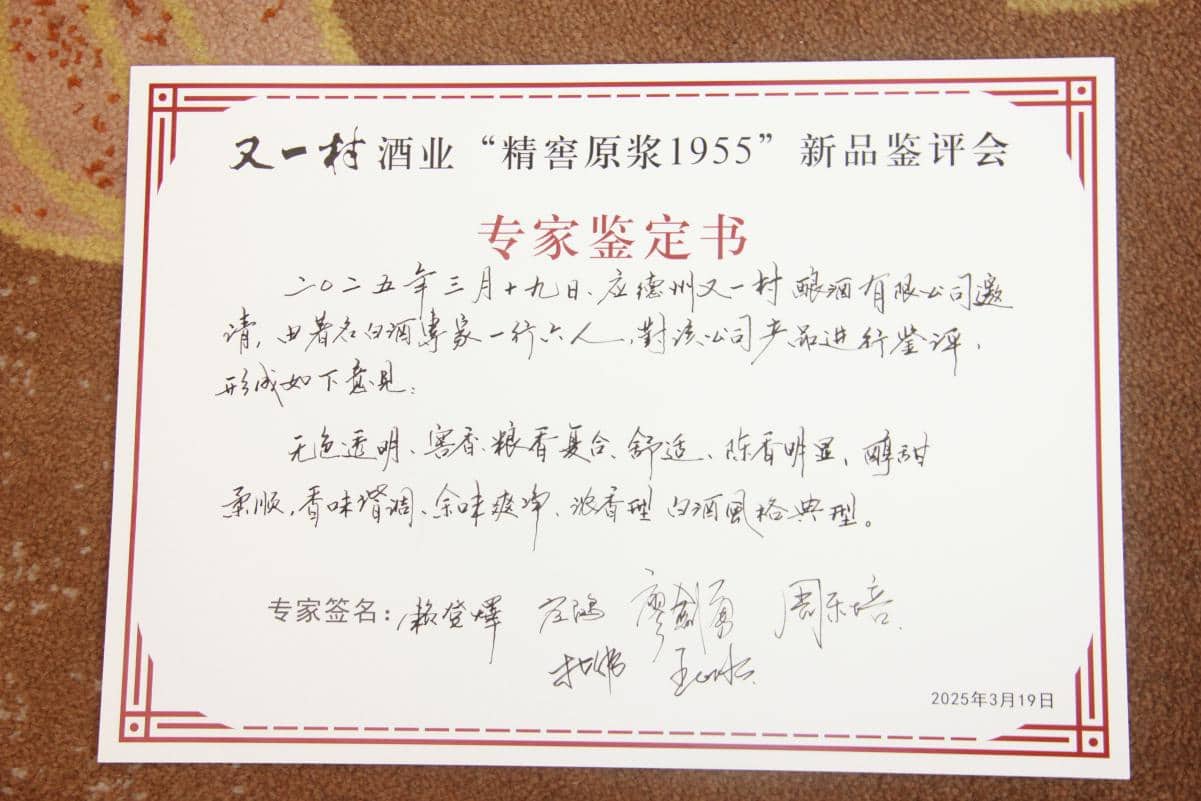 又一村酒业“精窖原浆1955”新品鉴评会
专家鉴定书
二〇二五年三月十九日、应德州又一村酿酒有限公司邀
请，由著名白酒專家一行六人，對该公司产品进行鉴评，
形成如下意见：
无色透明、窖香、粮香复合、舒适、陈香明显、醇甜
柔顺，香味谐调、余味爽净、浓香型白酒风格典型。
专家签名：赖登燡 廖剑勇 周乐培
2025年3月19日